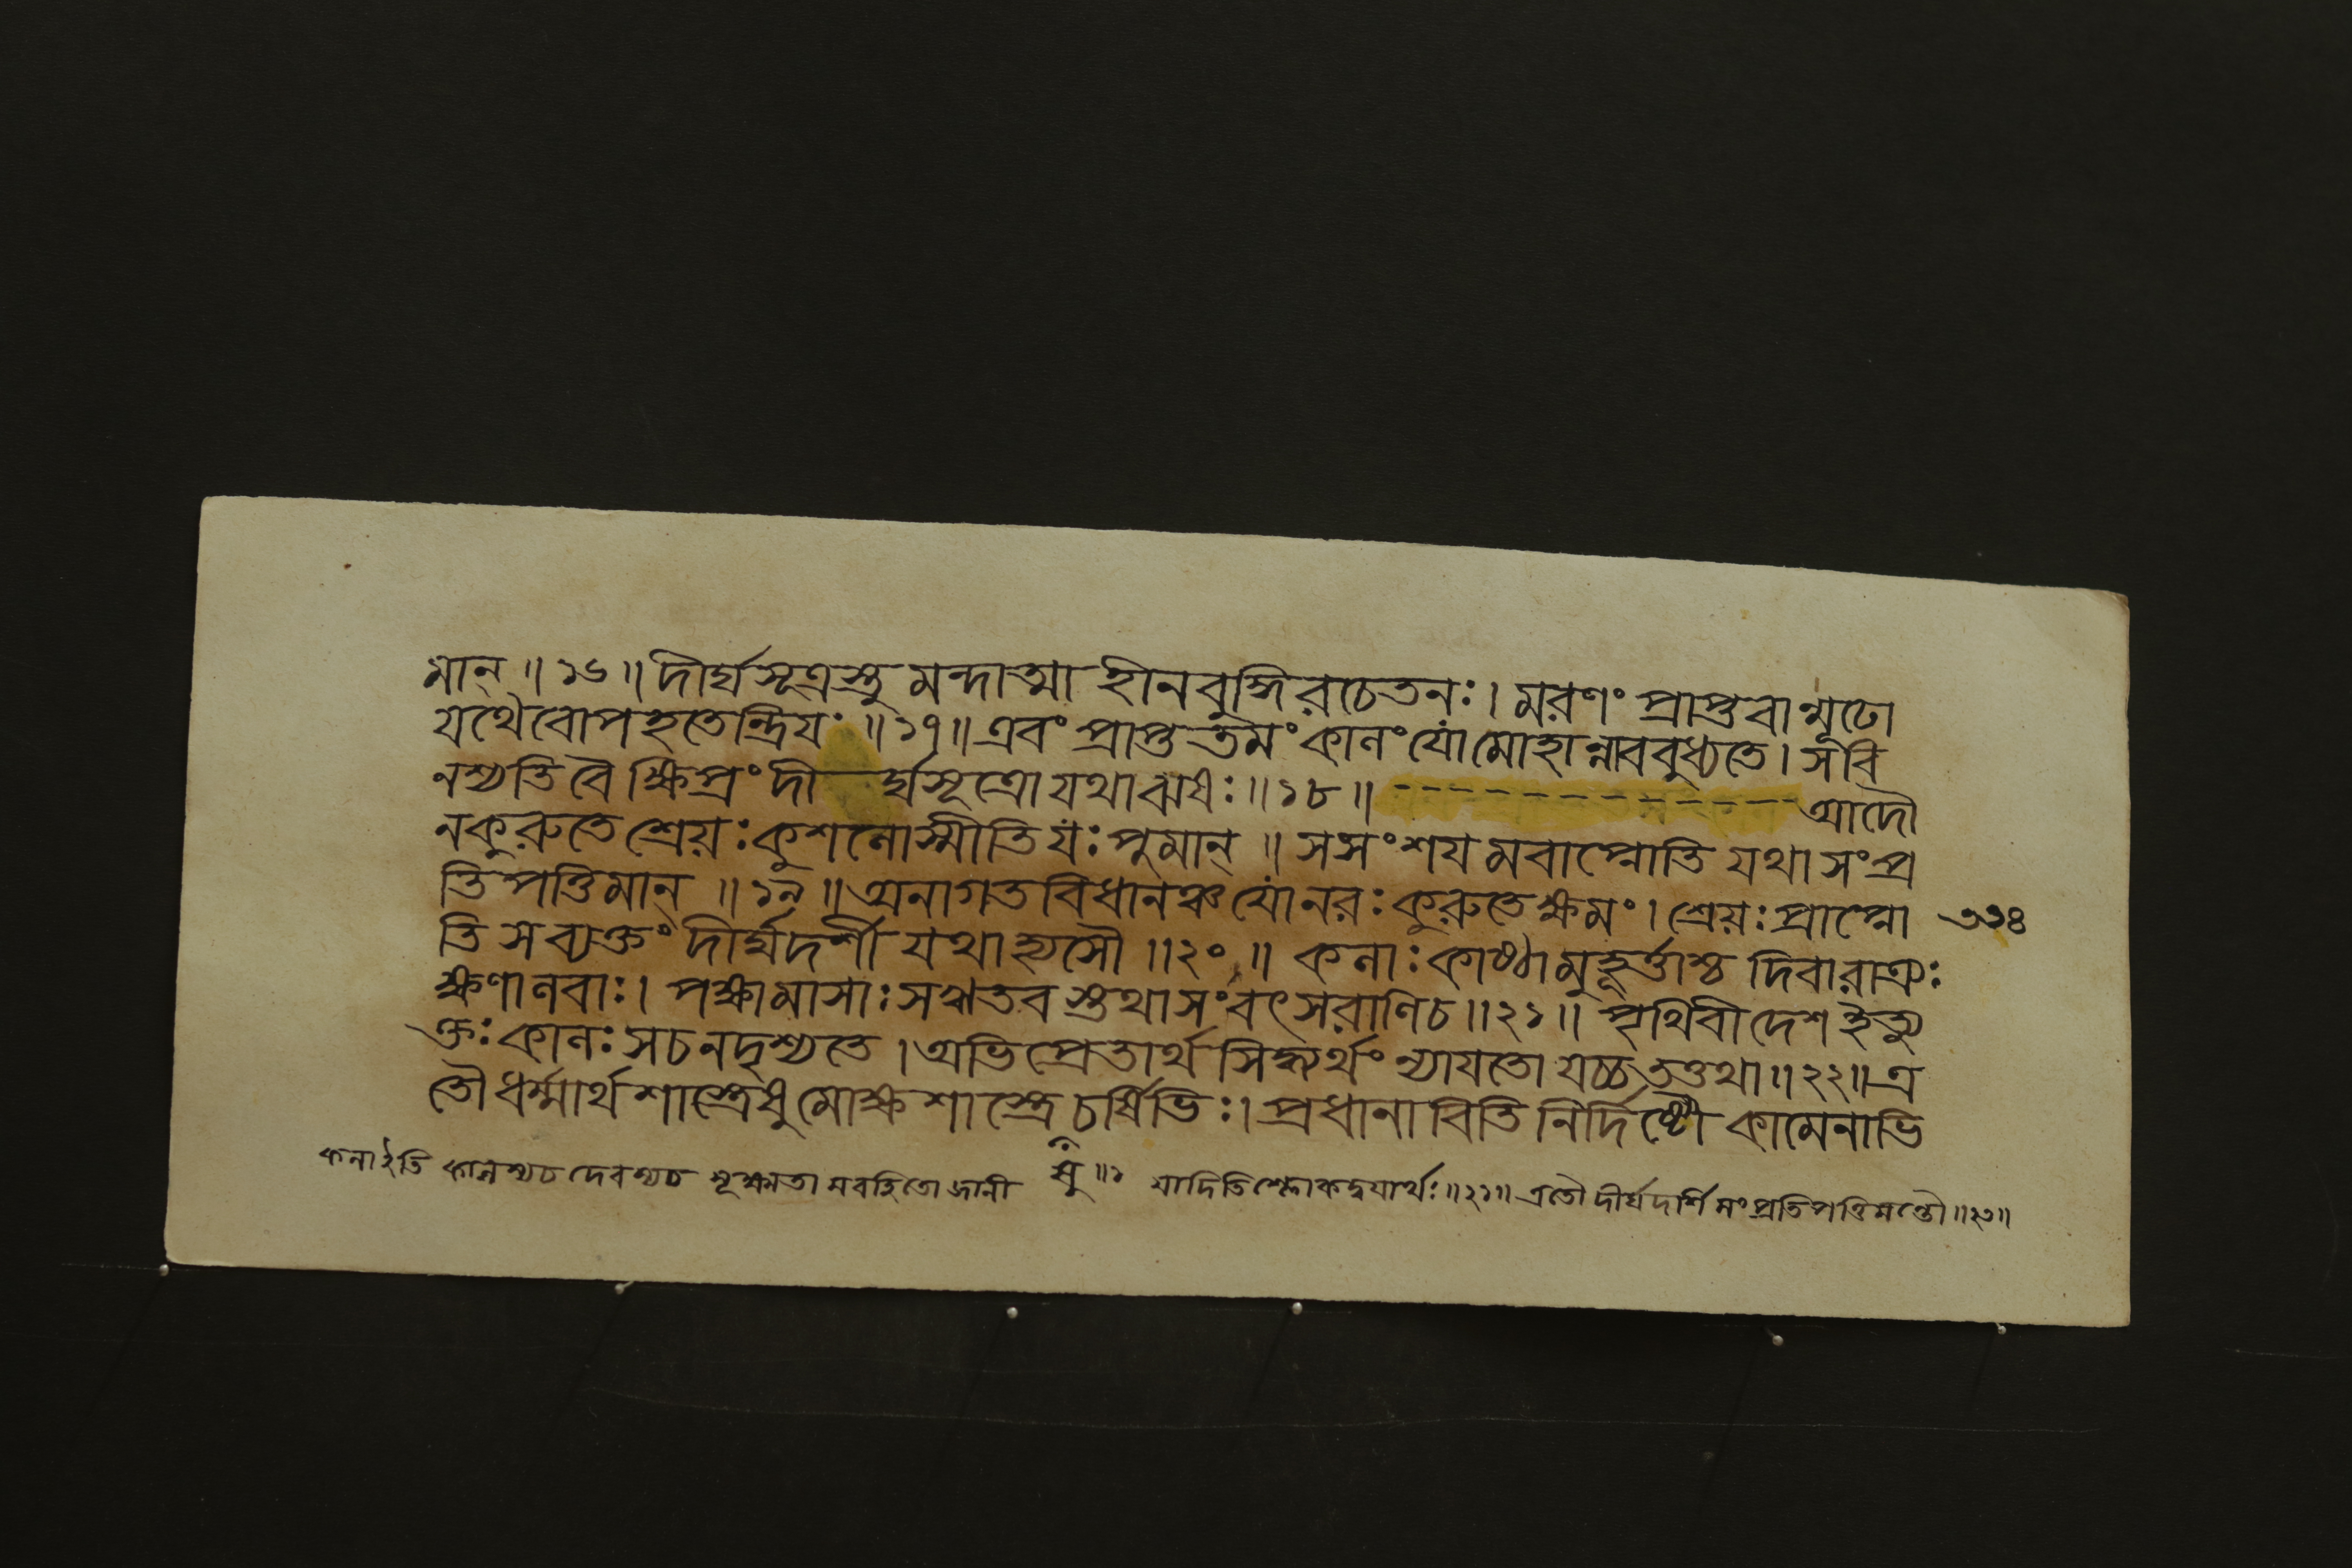 মান্ ॥ ১৬ ॥ দীর্ঘসূত্রস্তু মন্দাত্মা হীনবুদ্ধিরচেতনঃ । মরণং প্রাপ্তবান্মূঢো
যথৈবোপহতেন্দ্রিযঃ ॥ ১৭ ॥ এবং প্রাপ্ততমং কালং যোমোহান্নাববুধ্যতে । সবি
নশ্যতি বৈ ক্ষিপ্রং দী র্ঘসূত্রো যথাঝষঃ ॥ ১৮ ॥ - - - - - - - - - - - - - - - আদৌ
নকুরুতে শ্রেয়ঃ কুশলোস্মীতি যঃ পুমান্ ॥ সসংশয মবাপ্নোতি যথা সংপ্র
তিপত্তিমান্ ॥ ১৯ ॥ অনাগত বিধানঞ্চ যোনরঃ কুরুতে ক্ষমং । শ্রেয়ঃ প্রাপ্নো ৩১৪
তি সব্যক্তং দীর্ঘদর্শী যথাহ্যসৌ ॥ ২০ ॥ কলাঃ কাষ্ঠামুহূর্ত্তাশ্চ দিবারাত্রিঃ
ক্ষণালবাঃ । পক্ষামাসাঃ সষড়ৃতব স্তথাসংবৎসরাণিচ ॥ ২১ ॥ পৃথিবীদেশ ইত্যু
ক্তঃ কালঃ সচনদৃশ্যতে । অভিপ্রেতার্থ সিদ্ধ্যর্থং ন্যাযতো যচ্চ তত্তথা ॥ ২২ ॥ এ
তৌ ধর্ম্মার্থশাস্ত্রেষু মোক্ষশাস্ত্রে চর্ষিভিঃ । প্রধানাবিতি নির্দিষ্টৌ কামেনাভি
কলাইতি কালস্যচ দেবস্যচ সূক্ষ্মতা মবহিতো জানী যাদিতি শ্লোকদ্বযার্থঃ ॥ ২১ ॥ এতৌ দীর্ঘদর্শি সংপ্রতিপত্তিমন্তৌ ॥ ২৩ ॥